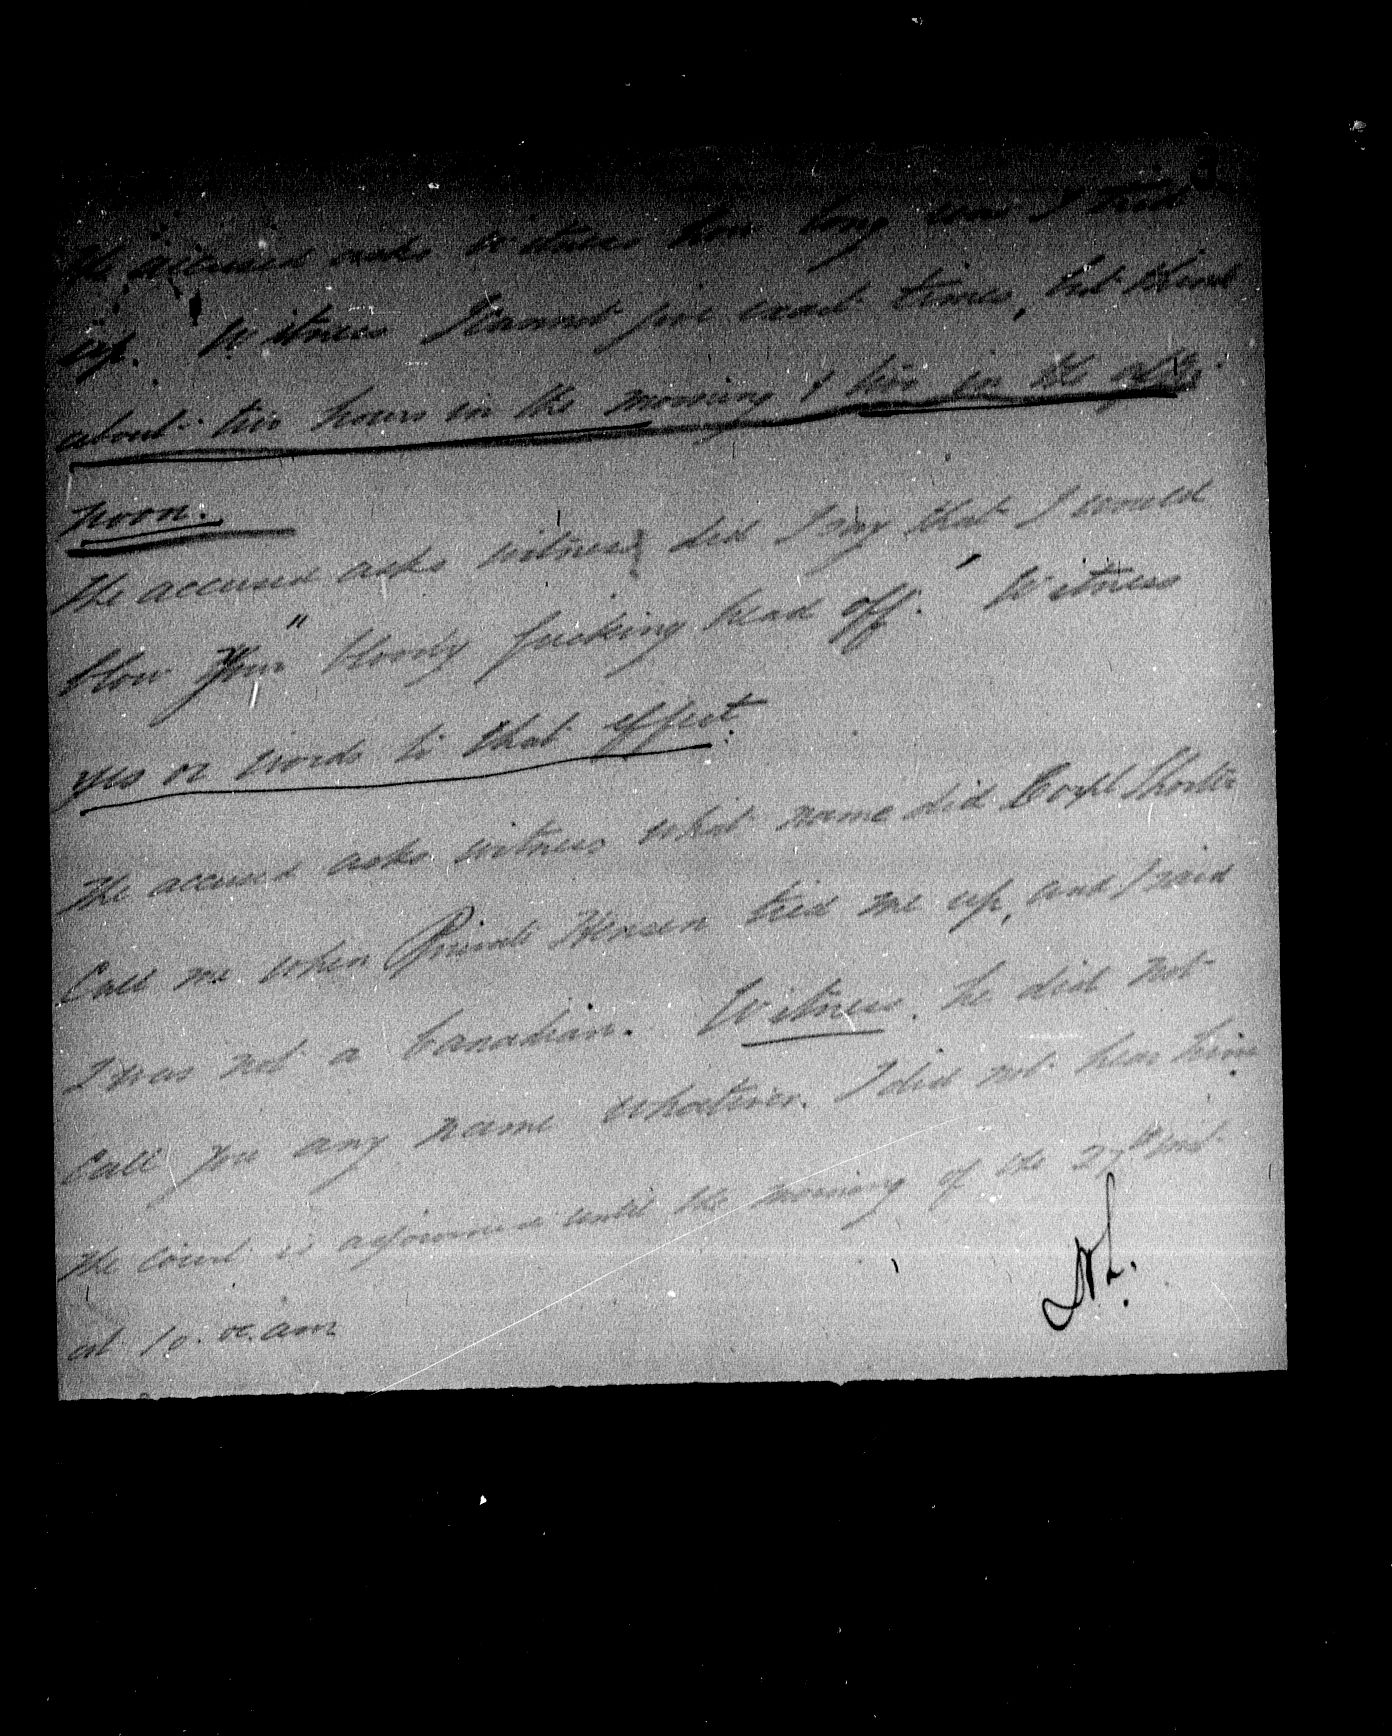 The accused asks witness how long was I tied
up. Witness I cannot give exact times, but think
about two hours in the morning & two in the after
noon.
The accused asks witness did I say that I would
blow your "bloody fucking head off." Witness
yes or words to that effect.
The accused asks witness what name did Corpl Shorter
Call me when Private Hensen tied me up, and I said
I was not a Canadian. Witness. he did not
Call you any name whatever. I did not hear him.
The court is adjourned until the morning of the 27th inst
at 10. oc. am